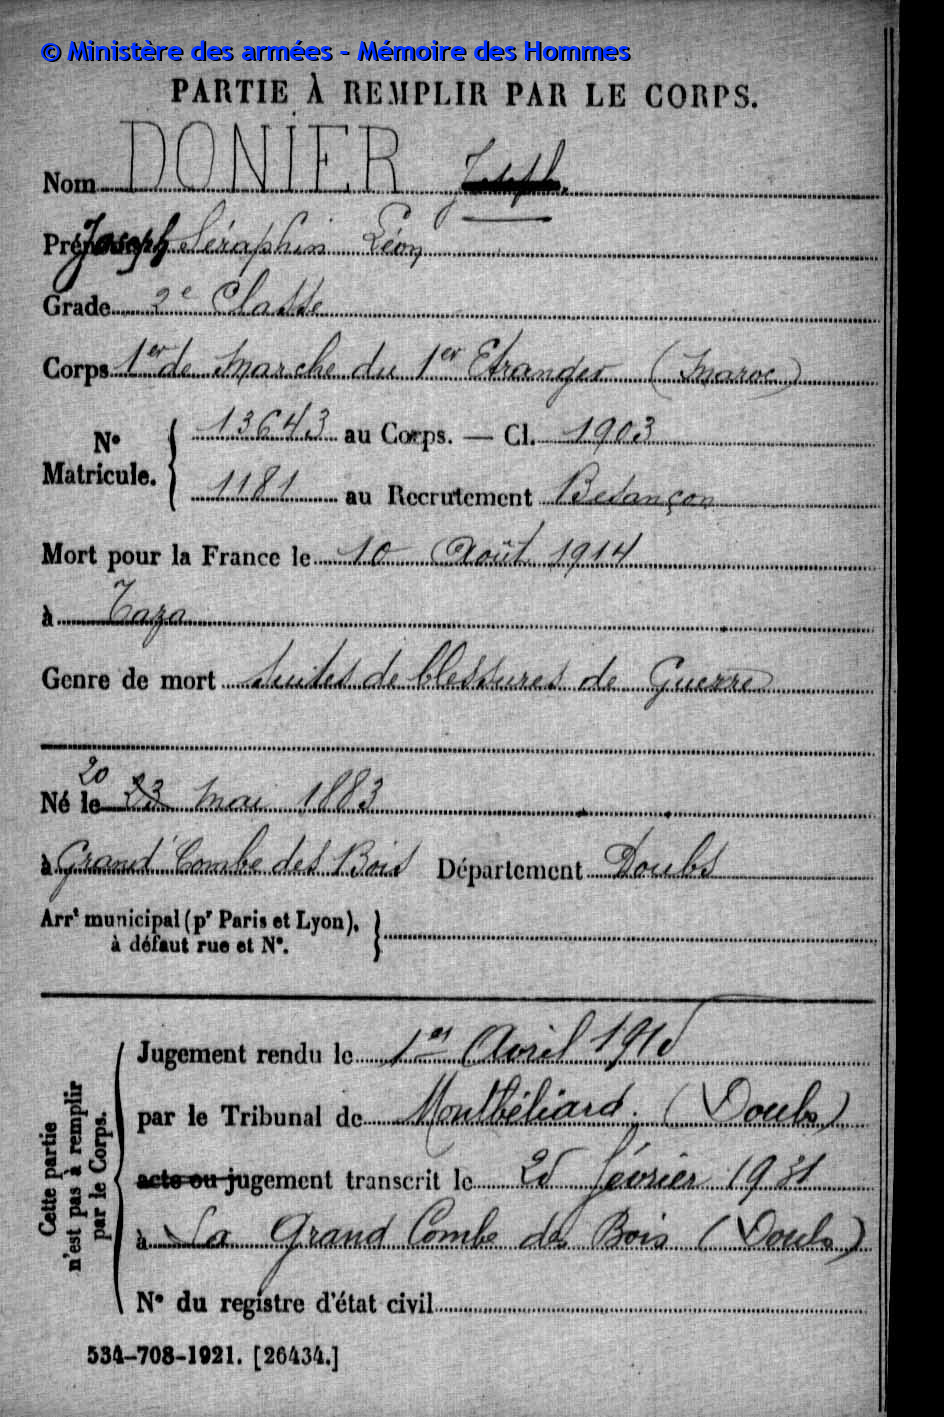 © Ministère des armées - Mémoire des Hommes
PARTIE À REMPLIR PAR LE CORPS.
Nom DONIER Joseph.
Prénoms Joseph Séraphin Léon
Grade 2e Classe
Corps 1er de Marche du 1er Etranger (Maroc)
N° Matricule. 13643 au Corps. — Cl. 1903
1181 au Recrutement Besançon
Mort pour la France le 10 Août 1914
à Taza
Genre de mort Suites de blessures de Guerre
20
Né le 23 mai 1883
à Grand'Combe des Bois Département Doubs
Arrt municipal (pr Paris et Lyon),
à défaut rue et N°.
Cette partie n'est pas à remplir par le Corps.
Jugement rendu le 1er Avril
par le Tribunal de Montbéliard. (Doubs)
acte ou jugement transcrit le février 1931
à La Grand Combe des Bois (Doubs)
N° du registre d'état civil
534-708-1921. [26434.]